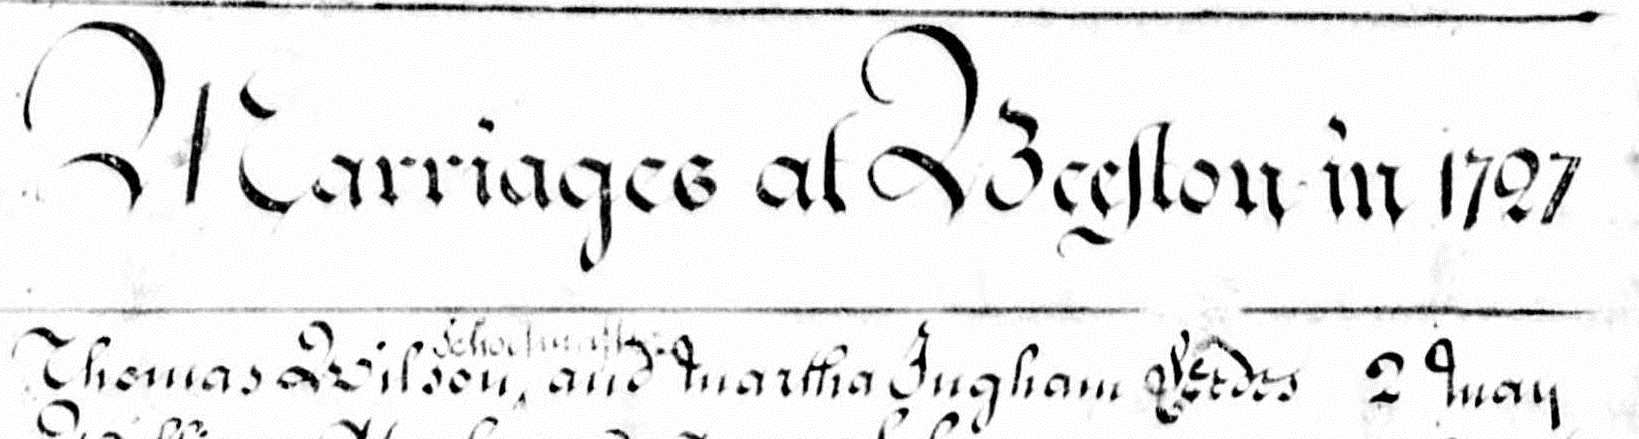 Marriages at Beeston in 1727
Schoolmaster
Thomas Wilson, and Martha Ingham Leedes 2 May